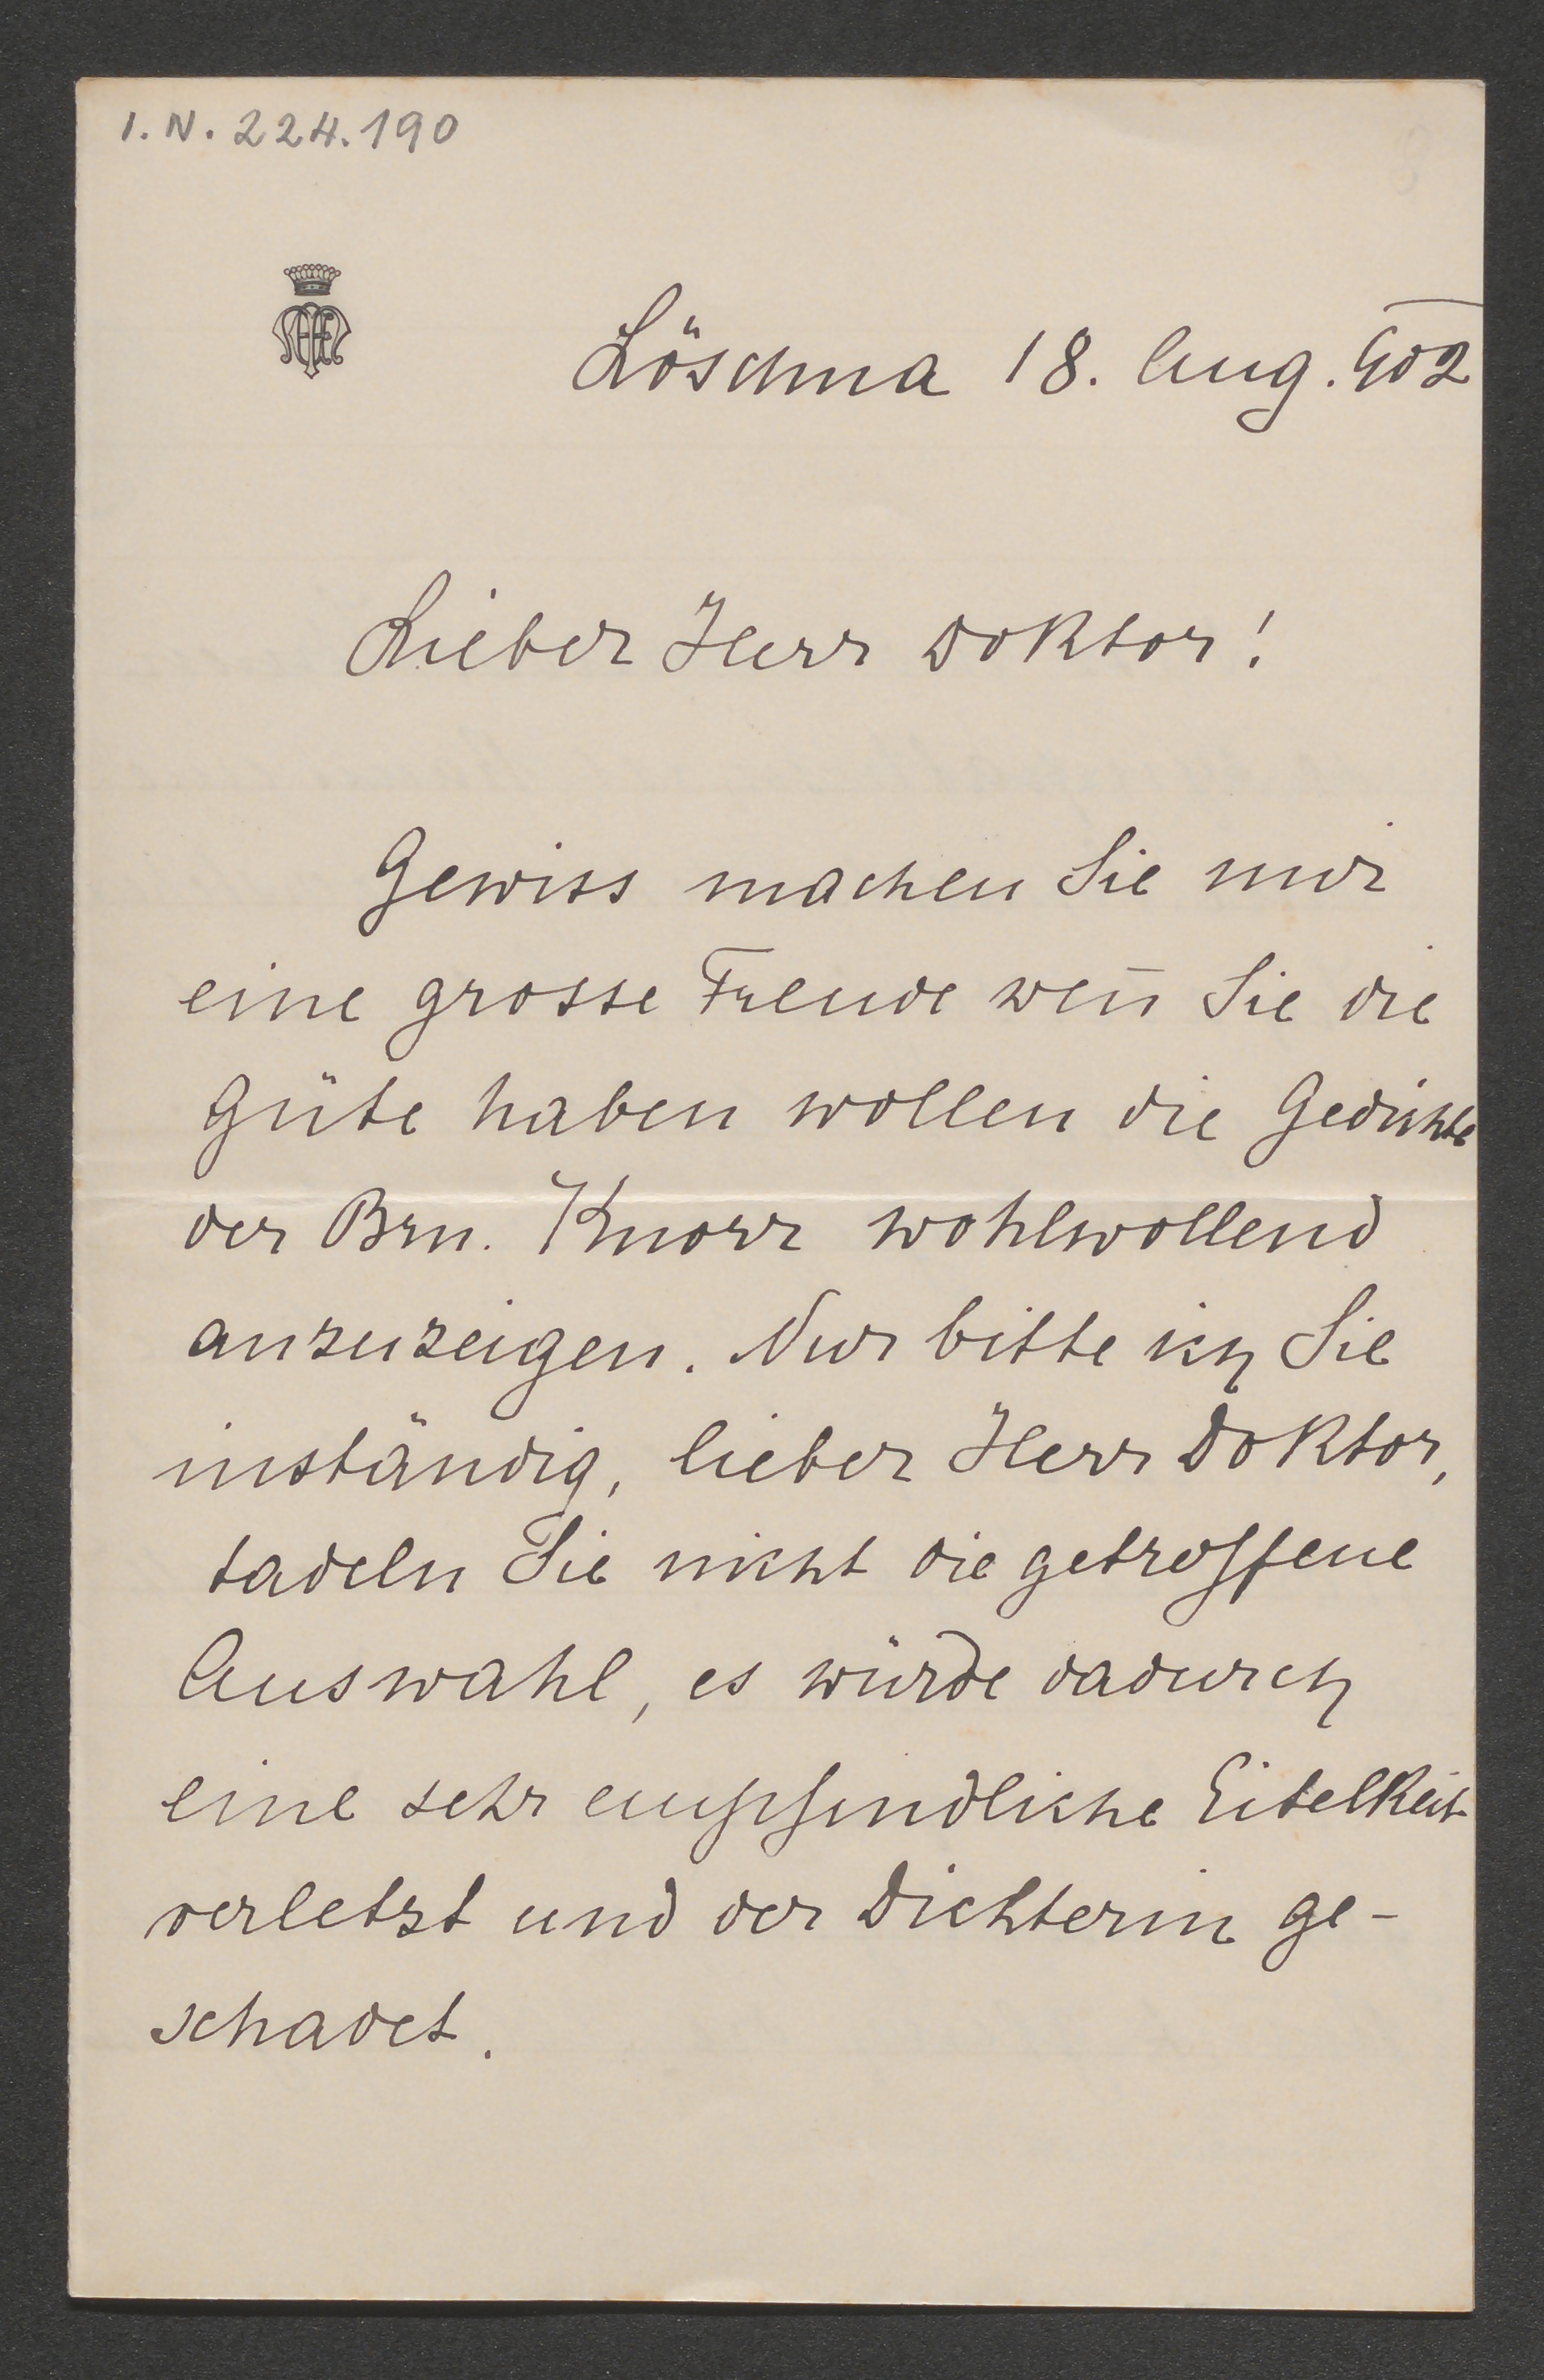 I.N. 224.190
Löschna 18. Aug. 902
Lieber Herr Doktor!
Gewiss machen Sie mir
eine grosse Freude weñ Sie die
Güte haben wollen die Gedichte
der Brn. Knorr wohlwollend
anzuzeigen. Nur bitte ich Sie
inständig, lieber Herr Doktor,
tadeln Sie nicht die getroffene
Auswahl, es würde dadurch
eine sehr empfindliche Eitelkeit
verletzt und der Dichterin ge-
schadet.